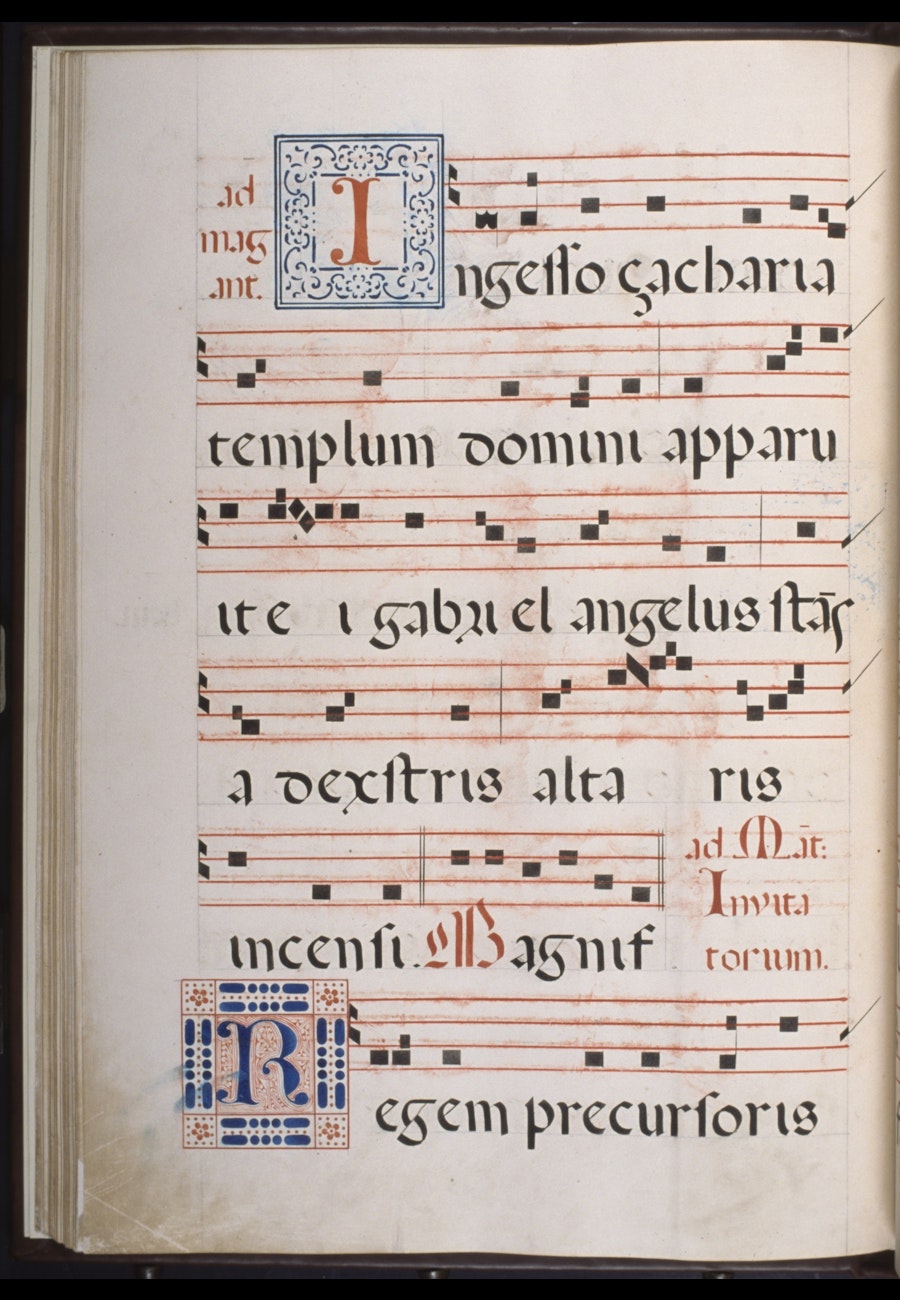 ad
mag
ant.
Ingeſſo çacharia
templum domini apparu
it e i gabriel angelus ſtāſ
a dexſtris alta ris
incenſi. Magnif
ad Māt:
Invita
torium.
Regem precurſoris